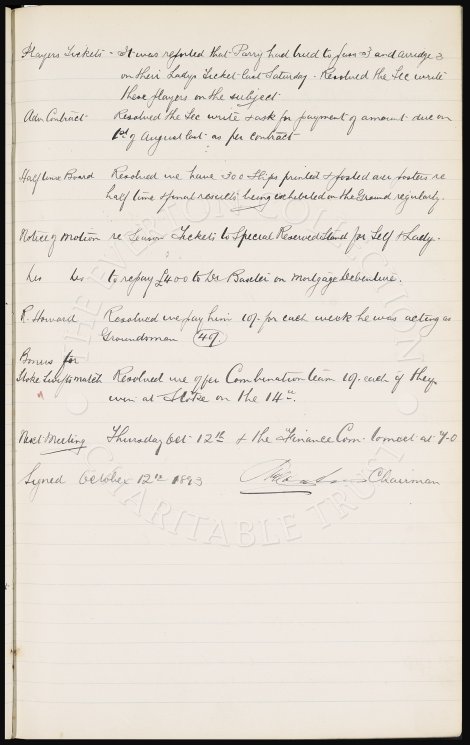 Players Tickets - It was reported that Parry had tried to pass 3 and Arridge 2
on their Lady's Ticket last Saturday - Resolved the Sec write
these players on the subject
Adv. Contract - Resolved the Sec write & ask for payment of amount due on
1st of August last as per contract
Half time Board Resolved we have 300 slips printed & posted as posters re
half time & final results being exhibited on the Ground regularly.
Notice of Motion re Season Tickets to Special Reserved Stand for Self & Lady.
Do Do to repay £400 to Dr Baxter on Mortgage Debenture.
R. Howard Resolved we pay him 10/- for each week he was acting as
Groundsman (40/-)
Bonus for
Stoke Swifts match Resolved we offer Combination team 10/- each if they
win at Stoke on the 14th.
Next Meeting Thursday Oct 12th & the Finance Com. to meet at 7-0
Signed October 12th 1893 Chairman
THE EVERTON COLLECTION
CHARITABLE TRUST